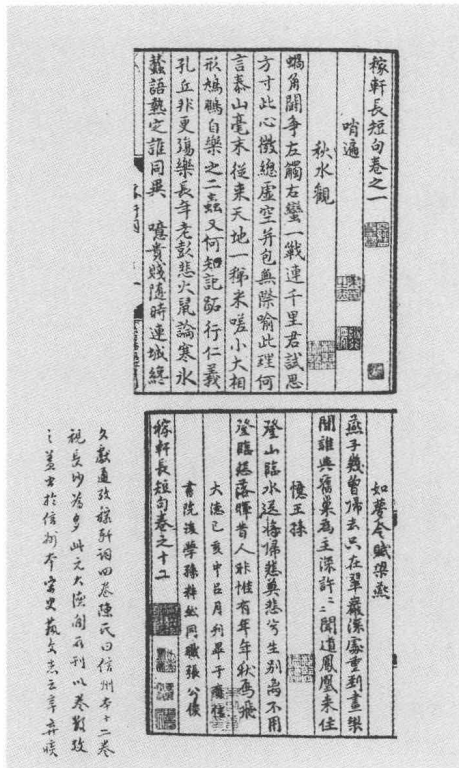 稼軒長短句卷之一
哨遍
秋水觀
蝸角鬭爭左觸右蠻一戰連千里君試思
方寸此心微總虛空并包無際喻此理何
言泰山毫末從來天地一稊米嗟小大相
形鳩鵬自樂之二蟲又何知記跖行仁義
孔丘非更殤樂長年老彭悲火鼠論寒氷
蠶語熱定誰同異　噫貴賤隨時連城纔
如夢令賦梁燕
燕子幾曾歸去只在翠巖深處重到畫梁
間誰與舊巢為主深許ミミ聞道鳳凰來住
憶王孫
登山臨水送將歸悲莫悲兮生別離不用
登臨怨落暉昔人非惟有年年秋鴈飛
大德己亥中呂月刊畢于廣信
書院後學孫粹然同職張公俊
稼軒長短句卷之十二
文獻通攷稼軒詞四卷陳氏曰信州本十二卷
視長沙為多此元大德間所刊以卷數攷
之蓋出於信州本宋史藝文志云辛棄疾